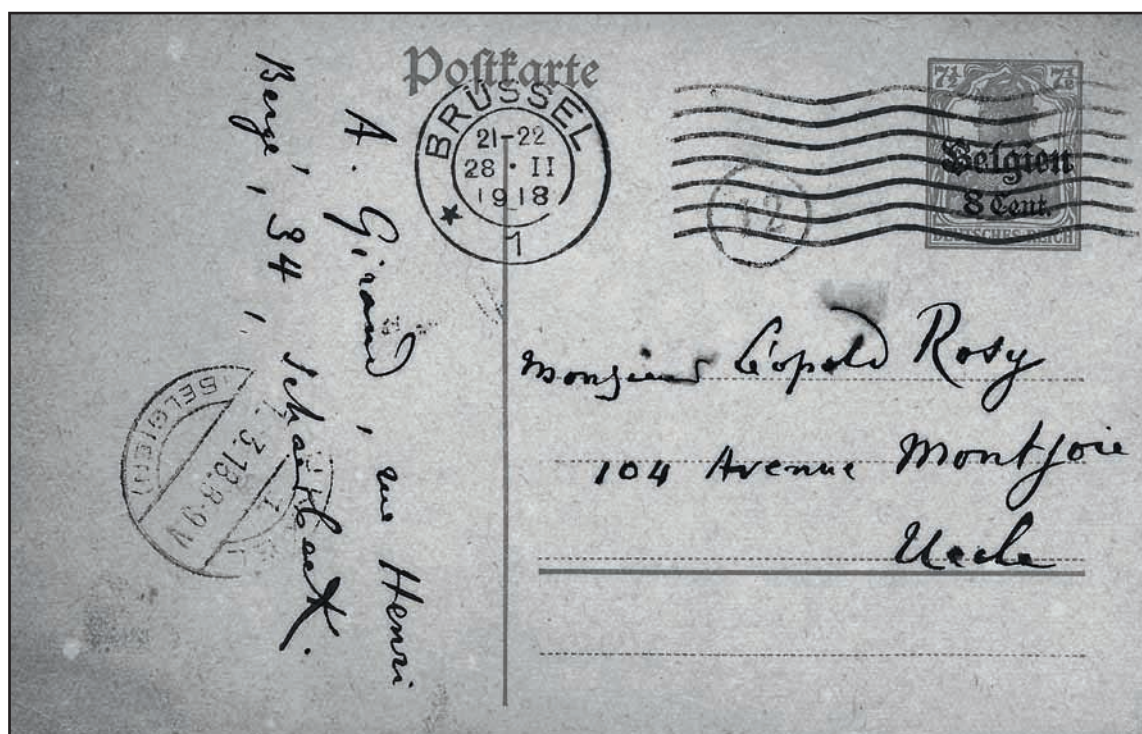 Postkarte
BRÜSSEL
21-22
28 · II
1918
1
12
7½ 7½
Belgien
8 Cent.
DEUTSCHES REICH
A. Giraud, rue Henri
Bergé, 34, Schaerbeek.
(BELGIEN)
1.3.18.8-9V
1
Monsieur Léopold Rosy
104 Avenue Montjoie
Uccle